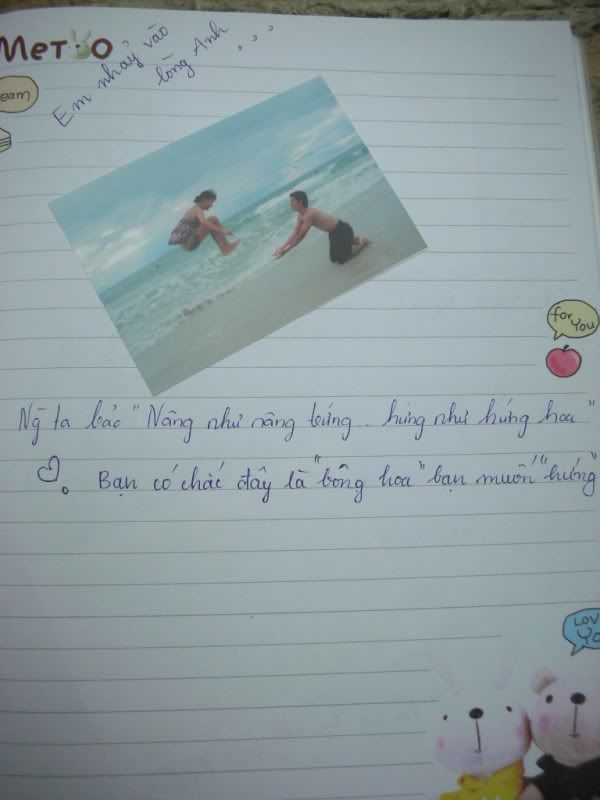 MeTOO
eam
Em nhảy vào
lòng Anh ...
for You
Ng ta bảo "Nâng như nâng trứng... hứng như hứng hoa"
Bạn có chắc đây là "bông hoa" bạn muốn "hứng"
LOV
Yo